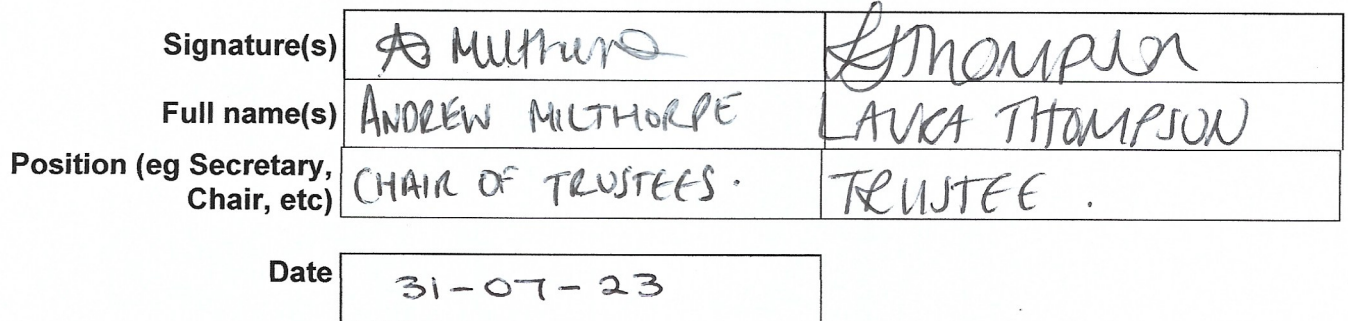 Signature(s) A Milthorpe LThompson
Full name(s) ANDREW MILTHORPE LAURA THOMPSON
Position (eg Secretary, CHAIR OF TRUSTEES. TRUSTEE.
Chair, etc)
Date 31-07-23